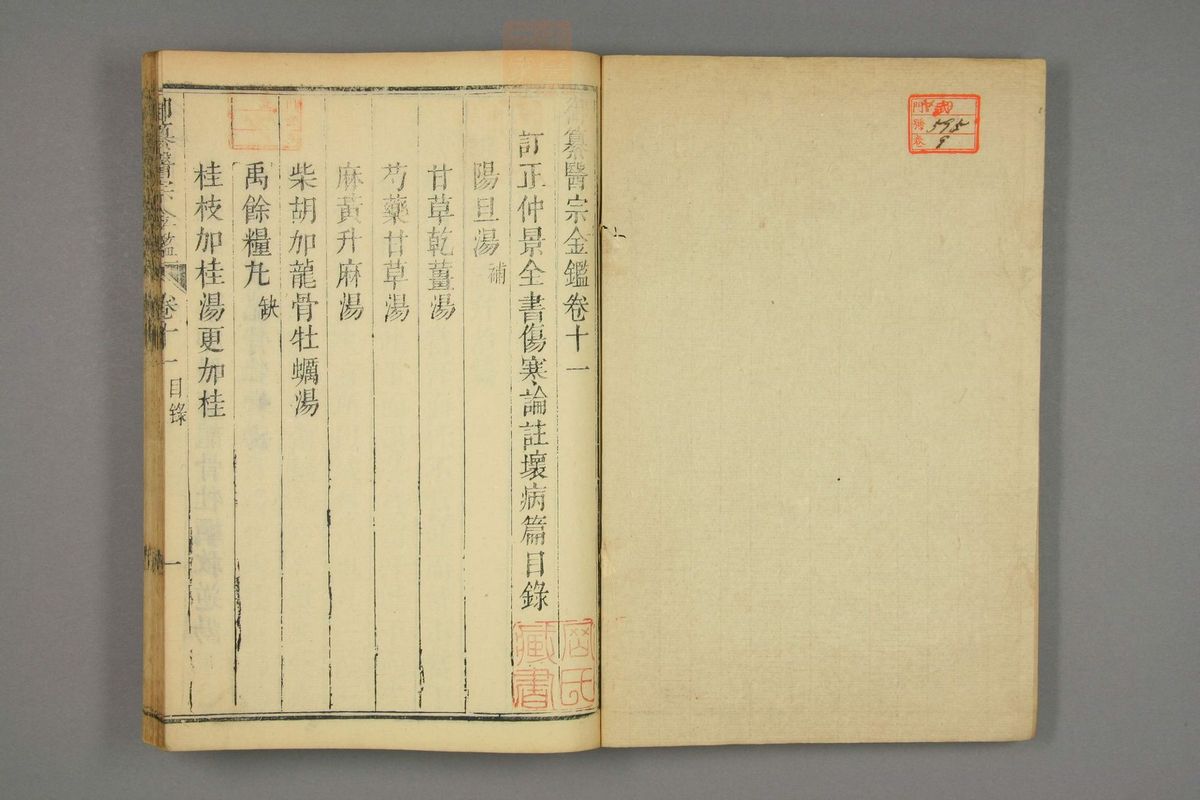 御纂醫宗金鑑卷十一
訂正仲景全書傷寒論註壞病篇目錄
陽旦湯 補
甘草乾薑湯
芍藥甘草湯
麻黃升麻湯
柴胡加龍骨牡蠣湯
禹餘糧九 缺
桂枝加桂湯更加桂
御纂醫宗金鑑 卷十一 目錄 一
門 號 595
卷 9
藏書